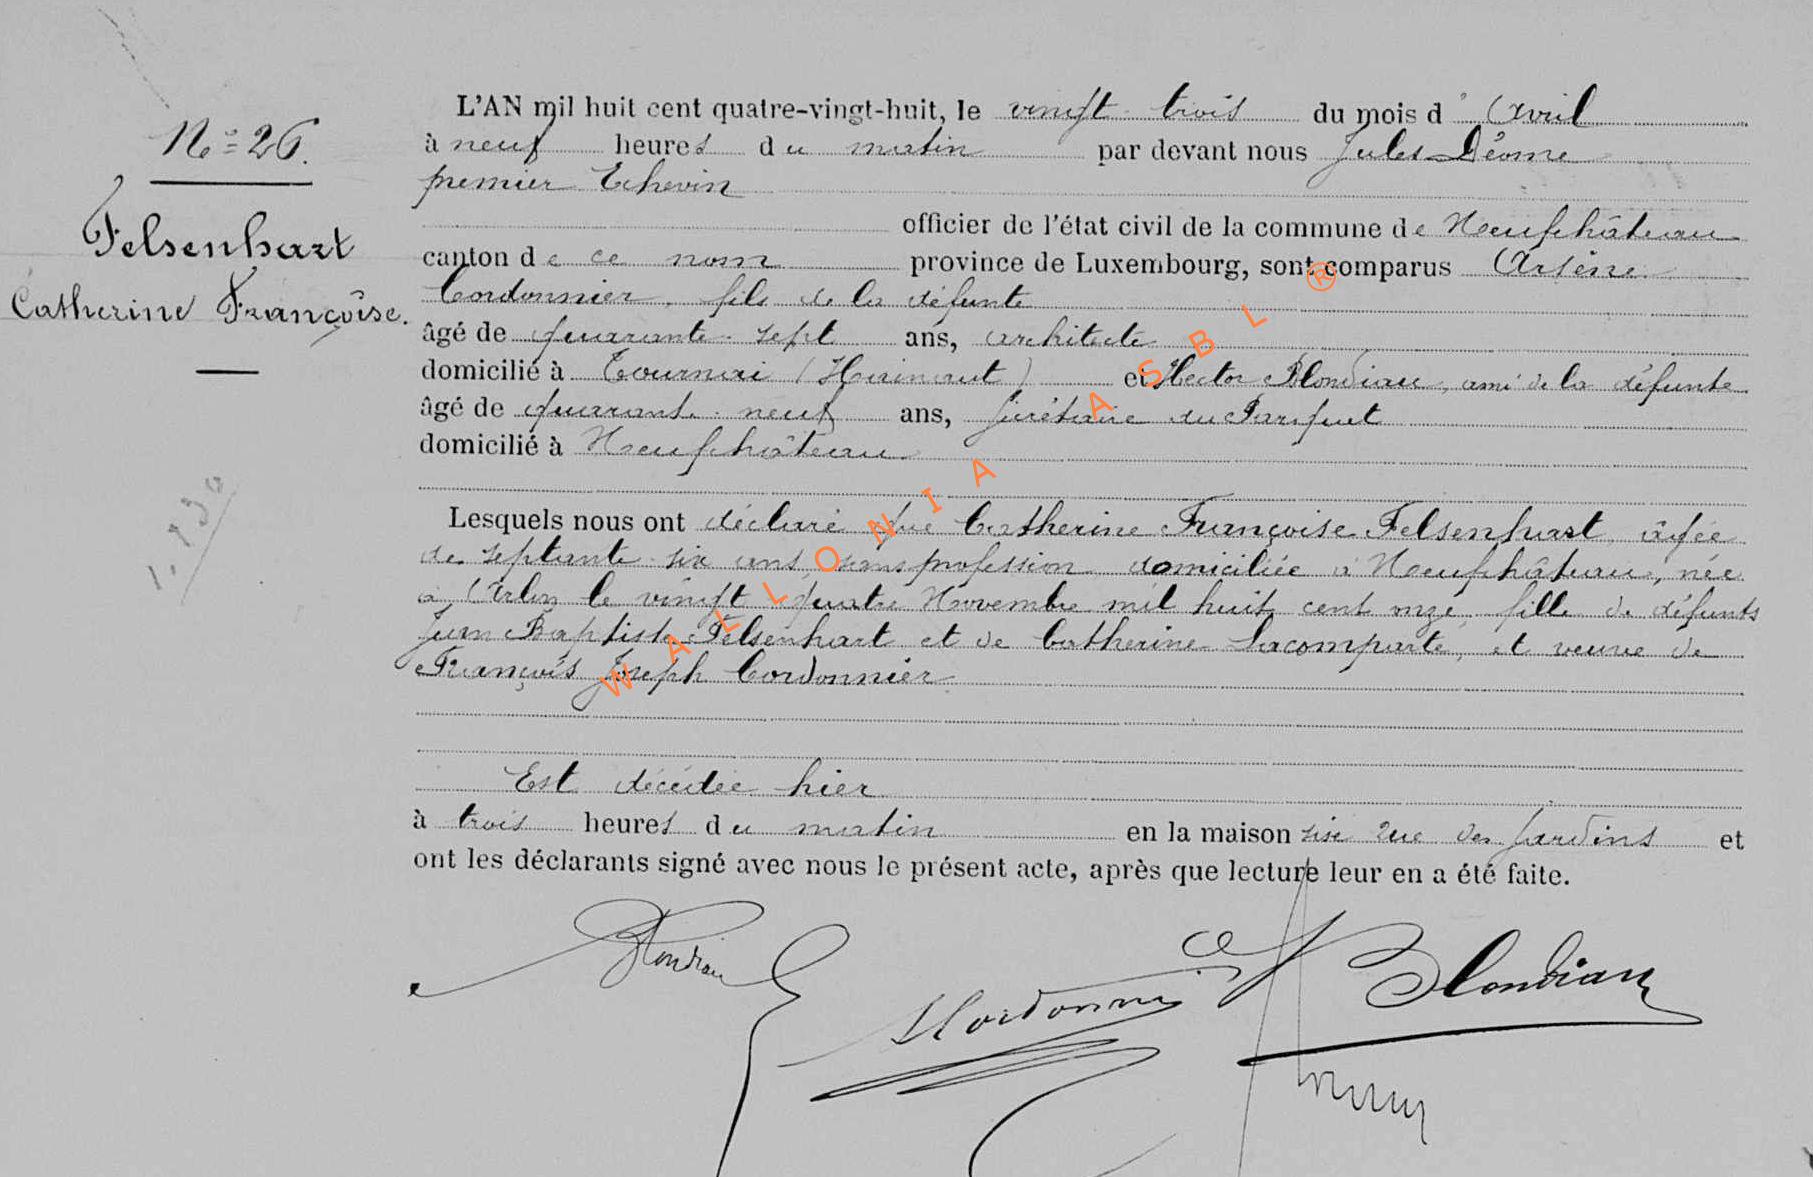 N° 26.
Felsenhart
Catherine Françoise.
L'AN mil huit cent quatre-vingt-huit, le vingt-trois du mois d' Avril
à neuf heures du matin par devant nous Jules Déome
premier Echevin
officier de l'état civil de la commune de Neufchâteau
canton de ce nom province de Luxembourg, sont comparus Arsène
Cordonnier, fils de la défunte
âgé de quarante-sept ans, architecte
domicilié à Tournai (Hainaut) et Hector Blondiau, ami de la défunte
âgé de quarante-neuf ans, secrétaire du Parquet
domicilié à Neufchâteau
Lesquels nous ont déclaré que Catherine Françoise Felsenhart, âgée
de septante-six ans, sans profession, domiciliée à Neufchâteau, née
à Arlon le vingt-quatre Novembre mil huit cent onze, fille de défunts
Jean Baptiste Felsenhart et de Catherine Lacomparte, et veuve de
François Joseph Cordonnier
Est décédée hier
à trois heures du matin en la maison sise rue des Jardins et
ont les déclarants signé avec nous le présent acte, après que lecture leur en a été faite.
Blondiau
Cordonnier
Blondiau
WALLONIA ASBL ®